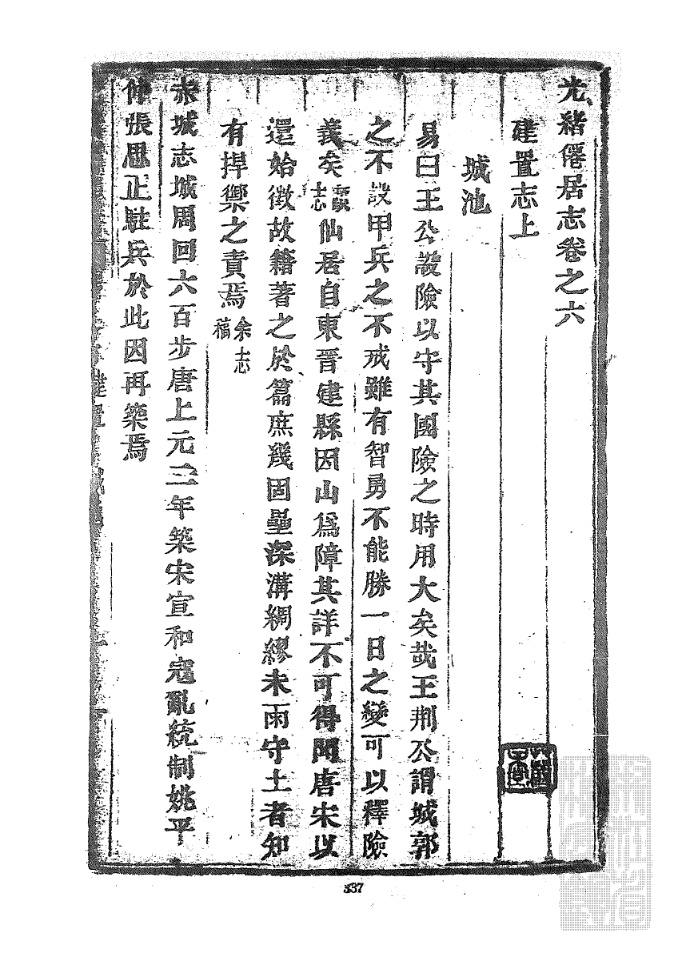 光緒僊居志卷之六
建置志上
城池
易曰王公設險以守其國險之時用大矣哉王荆公謂城郭
之不設甲兵之不戒雖有智勇不能勝一日之變可以釋險
義矣戴志仙居自東晋建縣因山爲障其詳不可得聞唐宋以
還始徵故籍著之於篇庶幾固壘深溝綢繆未雨守土者知
有捍禦之責焉余志稿
赤城志城周回六百步唐上元三年築宋宣和寇亂統制姚平
仲張思正駐兵於此因再築焉
337